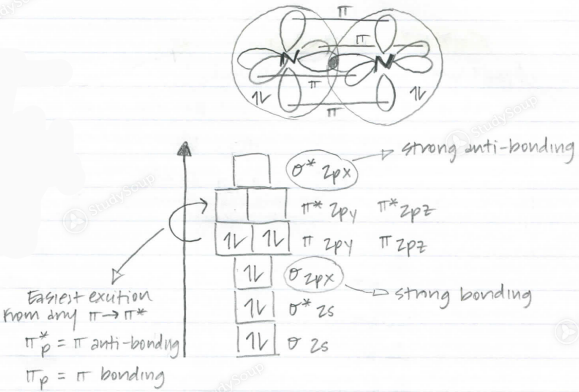 π
π
N N
π
1L 1L
π
strong anti-bonding
σ* 2px
π* 2py π* 2pz
1L 1L π 2py π 2pz
1L σ 2px
strong bonding
1L σ* 2s
1L σ 2s
Easiest exution
From any π → π*
π*p = π anti-bonding
πp = π bonding
StudySoup